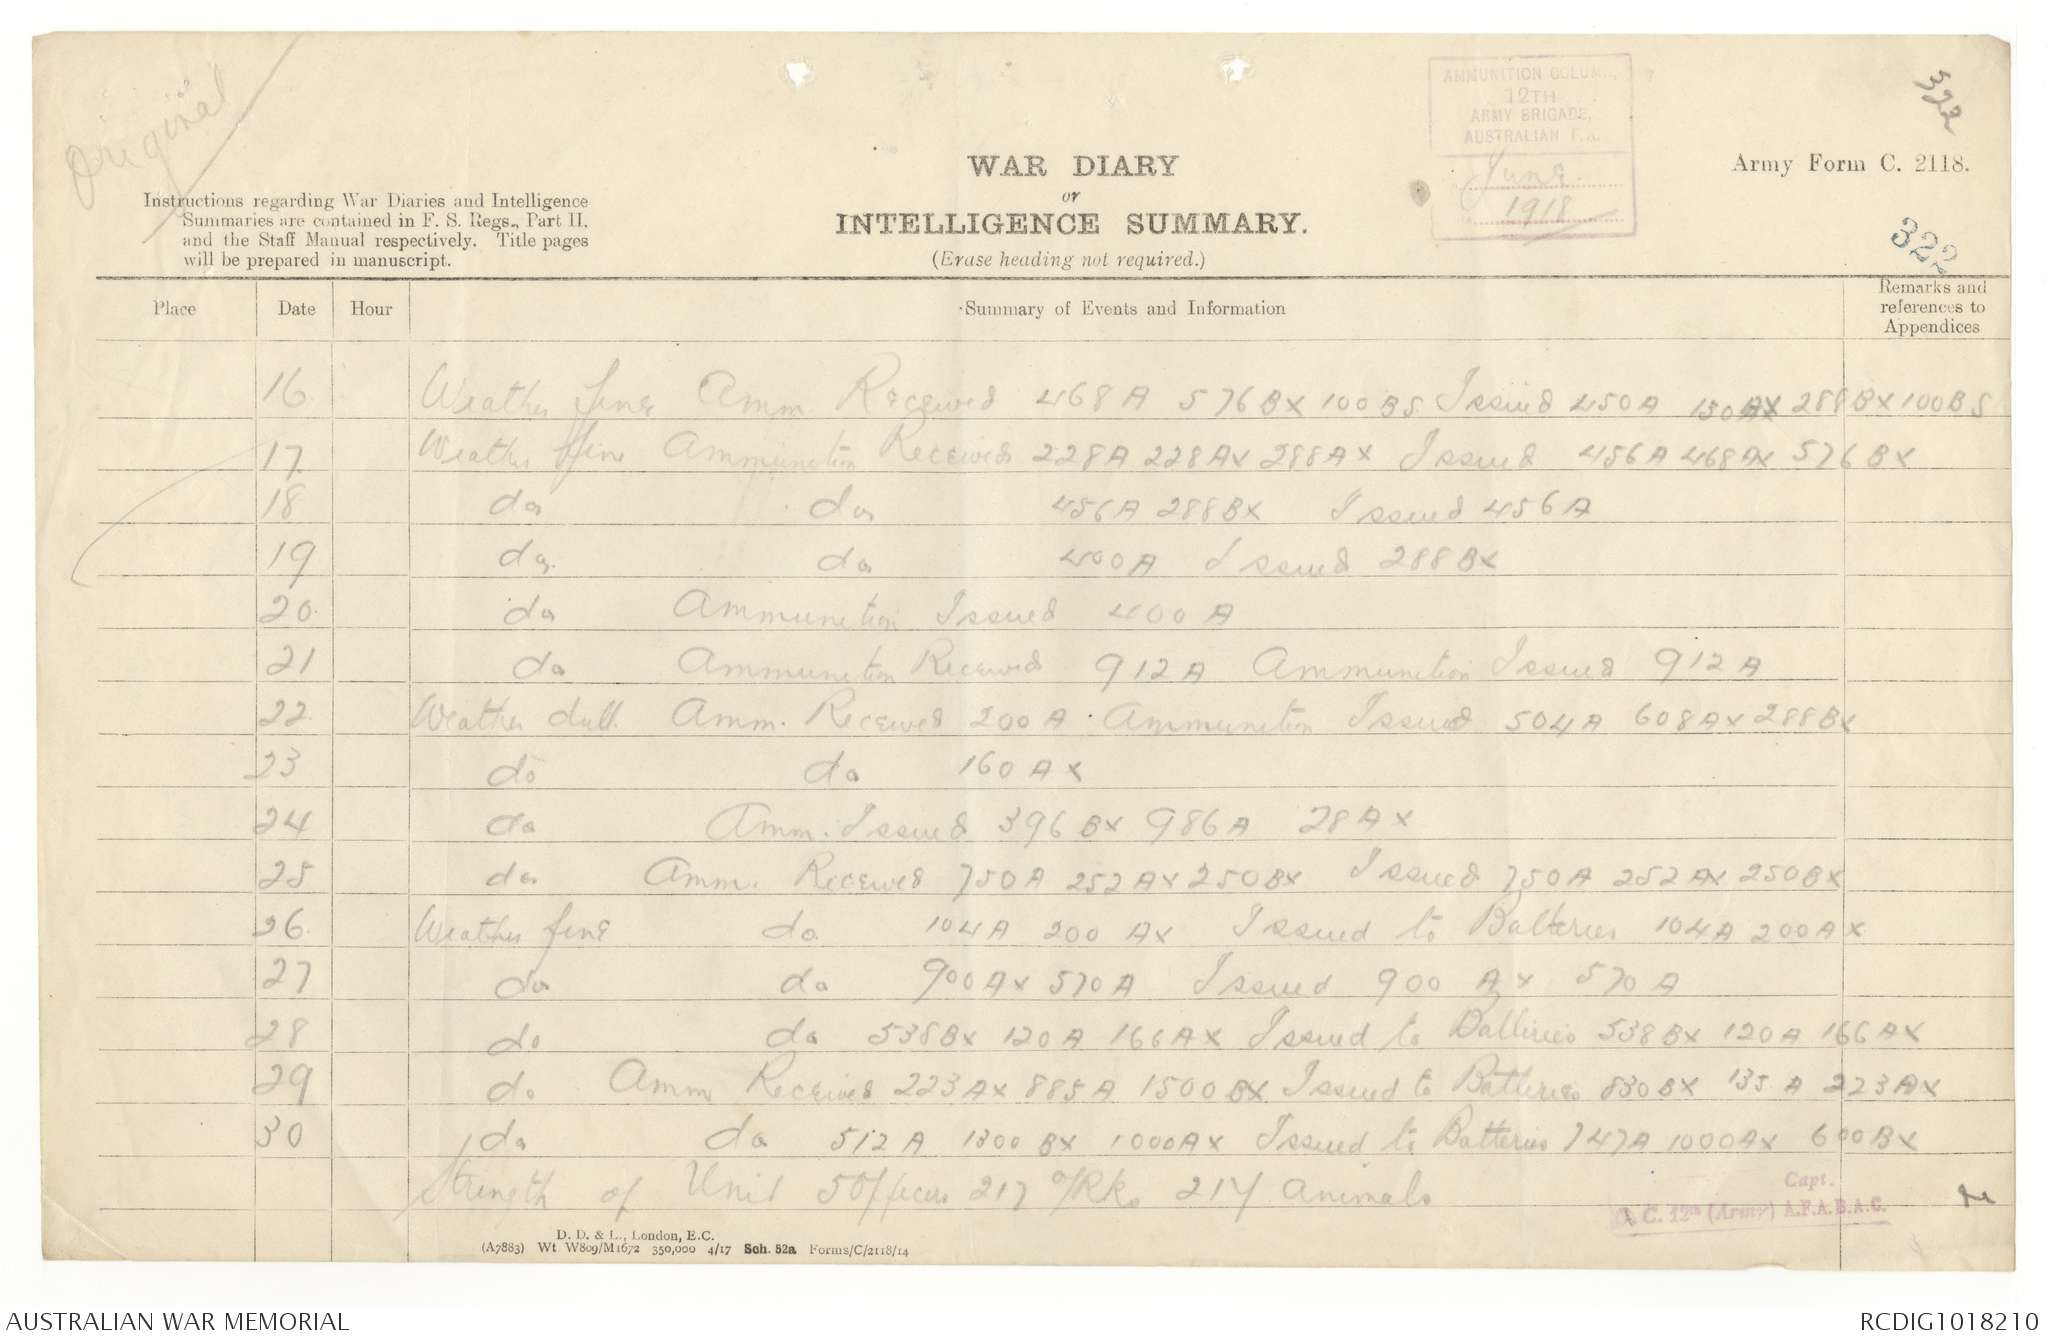 Original
AMMUNITION COLUMN,
12TH
ARMY BRIGADE,
AUSTRALIAN F.A.
June
1918
322
Army Form C. 2118.
WAR DIARY
or
INTELLIGENCE SUMMARY.
(Erase heading not required.)
Instructions regarding War Diaries and Intelligence
Summaries are contained in F. S. Regs., Part II.
and the Staff Manual respectively. Title pages
will be prepared in manuscript.
322
Place Date Hour Summary of Events and Information Remarks and references to Appendices
16. Weather fine Amm. Received 468A 576BX 100BS Issued 450A 150AX 288BX 100BS
17. Weather fine Ammunition Received 228A 228AX 288AX Issued 456A 468AX 576BX
18 do do 456A 288BX Issued 456A
19 do. do 400A Issued 288BX
20. do Ammunition Issued 400A
21 do Ammunition Received 912A Ammunition Issued 912A
22. Weather dull. Amm. Received 200A. Ammunition Issued 504A 608AX 288BX
23 do do 160AX
24 do Amm. Issued 396BX 986A 28AX
25 do Amm. Received 750A 252AX 250BX Issued 750A 252AX 250BX
26. Weather fine do. 104A 200AX Issued to Batteries 104A 200AX
27 do do 900AX 570A Issued 900AX 570A
28 do do 538BX 120A 166AX Issued to Batteries 538BX 120A 166AX
29 do Amm Received 223AX 885A 1500BX. Issued to Batteries 830BX 135A 223AX
30 do do 512A 1300BX 1000AX Issued to Batteries 747A 1000AX 600BX
Strength of Unit 5 Officers 217 O/Rks 214 animals
Capt.
O. C. 12th (Army) A.F.A.B.A.C.
D. D. & L., London, E.C.
(A7883) Wt. W809/M1672 350,000 4/17 Sch. 52a Forms/C/2118/14
AUSTRALIAN WAR MEMORIAL
RCDIG1018210